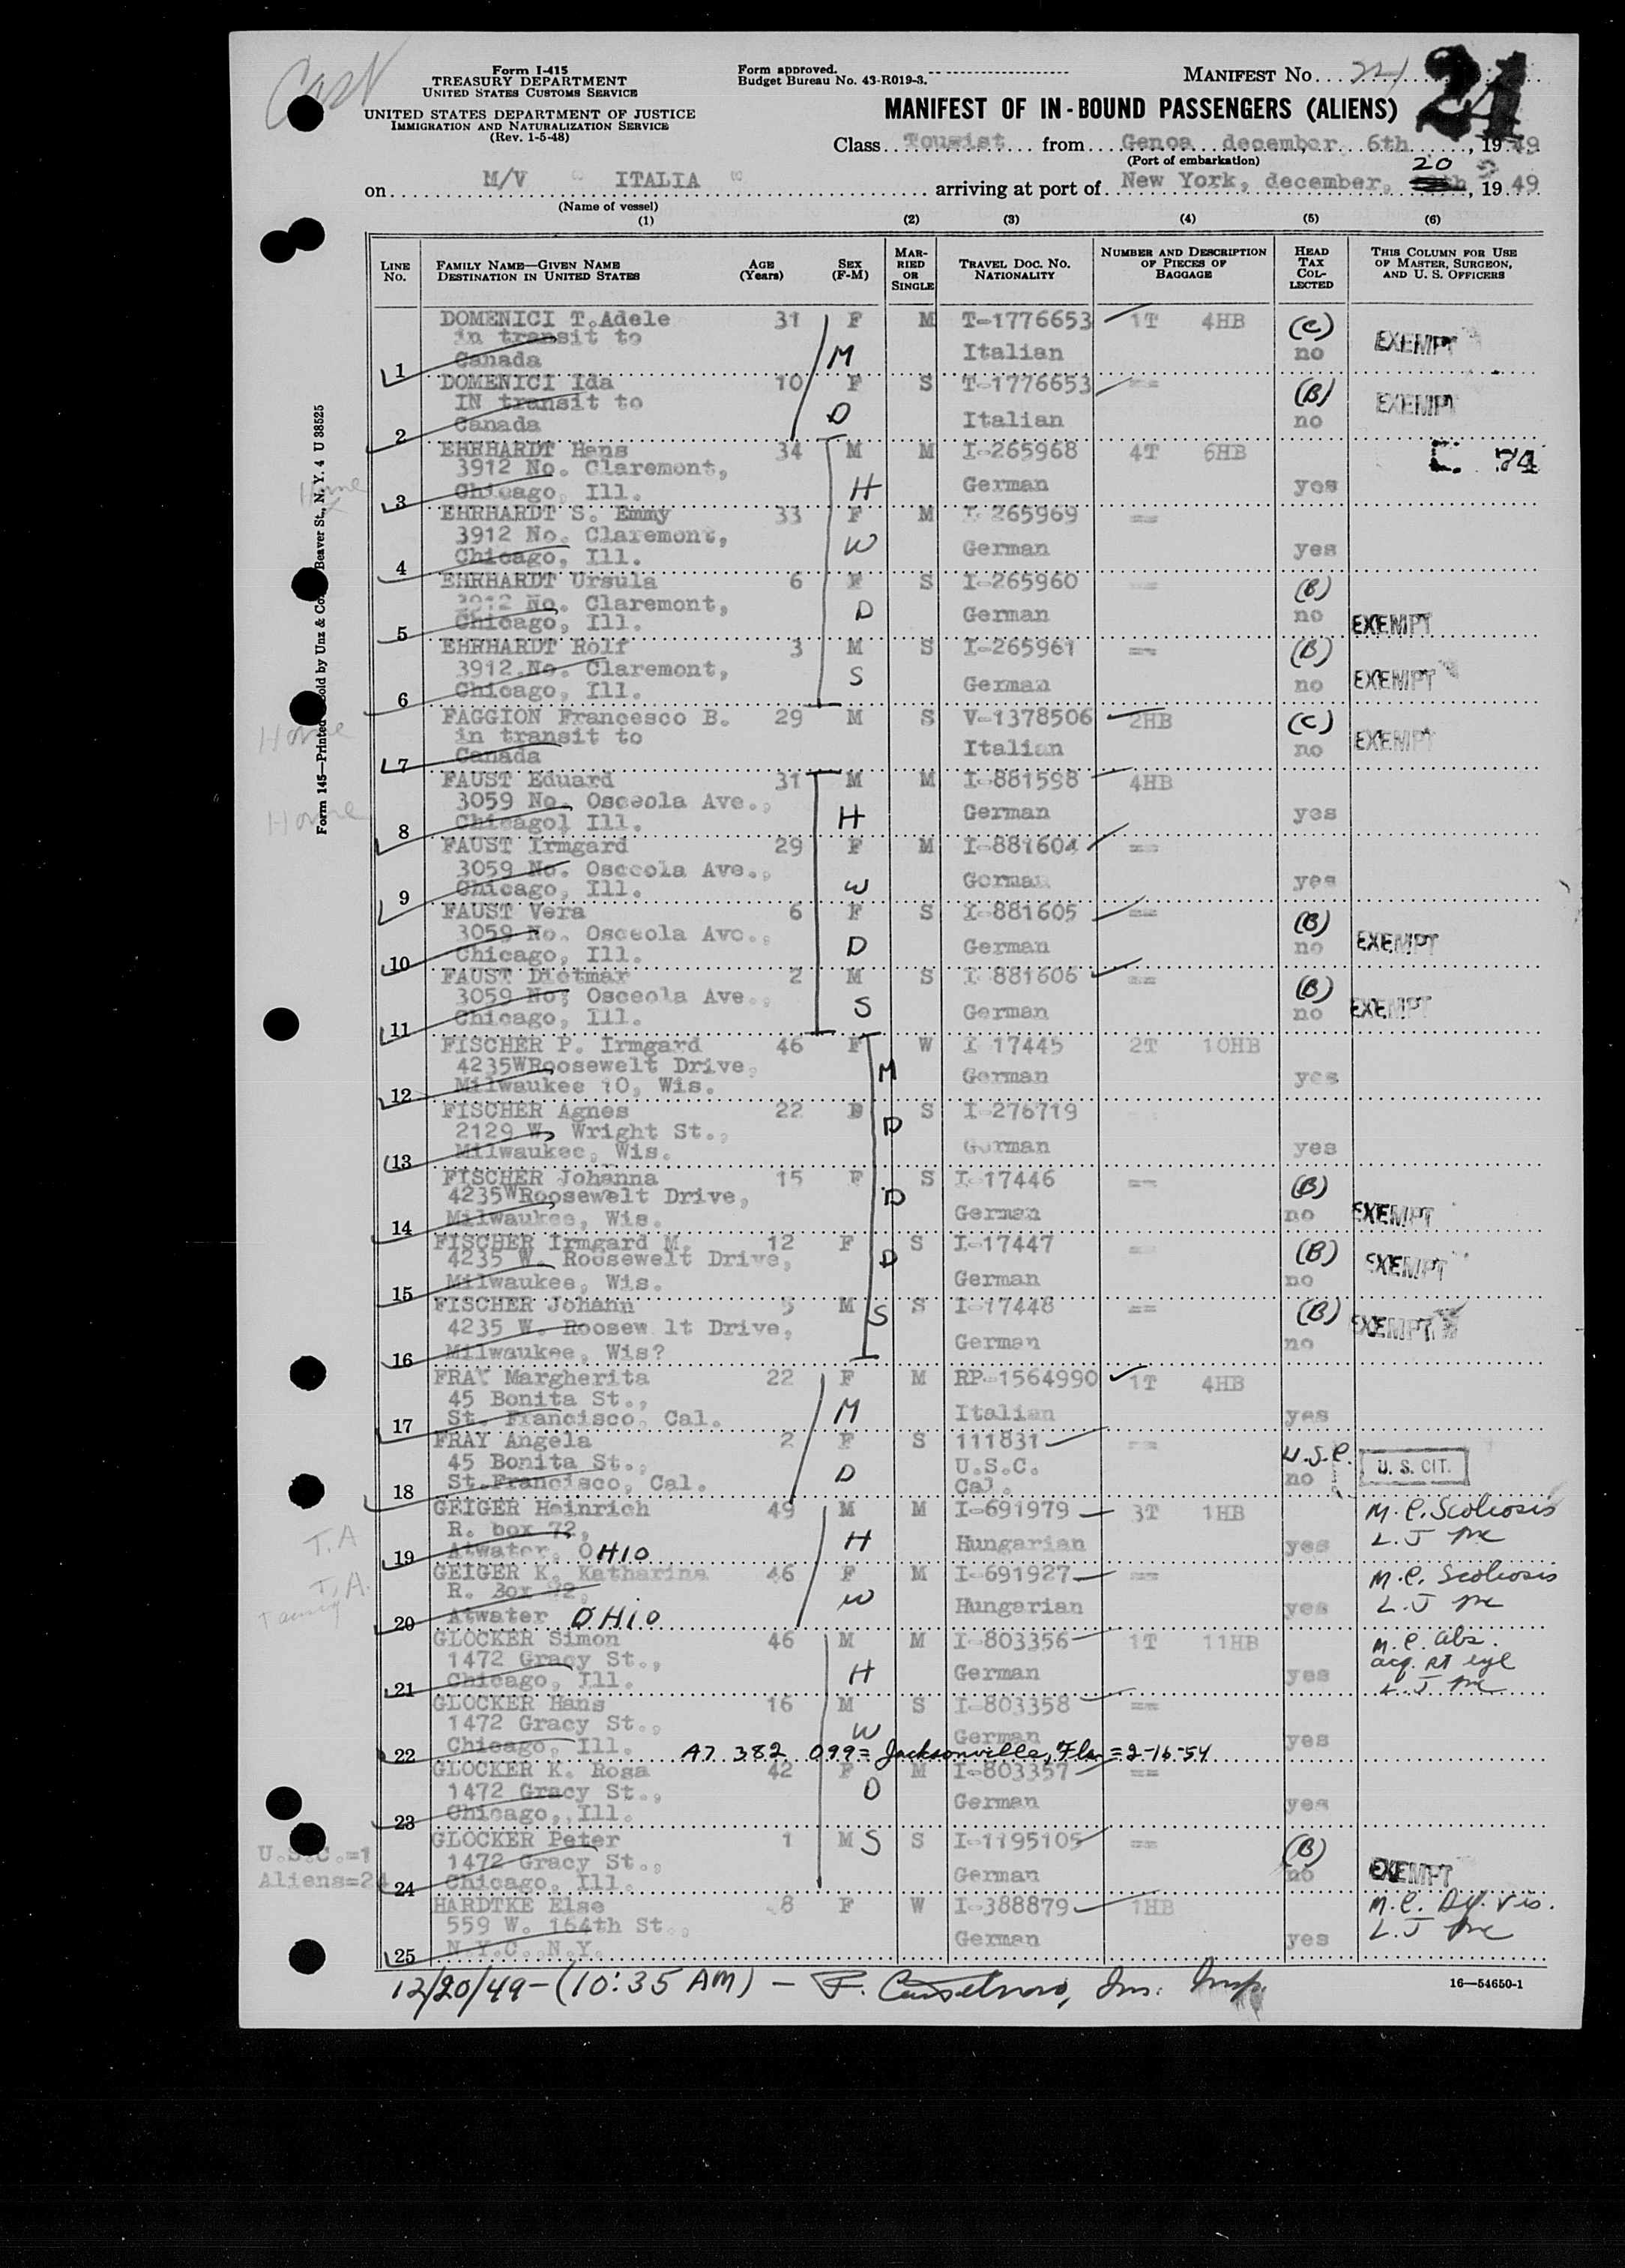 Form I-415
TREASURY DEPARTMENT
UNITED STATES CUSTOMS SERVICE
UNITED STATES DEPARTMENT OF JUSTICE
IMMIGRATION AND NATURALIZATION SERVICE
(Rev. 1-5-48)
Form approved.
Budget Bureau No. 43-R019-3.
MANIFEST No. 21
MANIFEST OF IN-BOUND PASSENGERS (ALIENS)
Class Tourist from Genoa december, 6th, 1949
(Port of embarkation)
on M/V " ITALIA " arriving at port of New York, december, 20, 1949
(Name of vessel)
(1) (2) (3) (4) (5) (6)
LINE No. FAMILY NAME—GIVEN NAME DESTINATION IN UNITED STATES AGE (Years) SEX (F-M) MARRIED OR SINGLE TRAVEL DOC. NO. NATIONALITY NUMBER AND DESCRIPTION OF PIECES OF BAGGAGE HEAD TAX COLLECTED THIS COLUMN FOR USE OF MASTER, SURGEON, AND U. S. OFFICERS
DOMENICI T.Adele 31 F M T-1776653 1T 4HB (C) EXEMPT
in transit to
1 Canada M Italian no
DOMENICI Ida 10 F S T-1776653 == (B) EXEMPT
IN transit to
2 Canada D Italian no
EHRHARDT Hans 34 M M I-265968 4T 6HB 74
3912 No. Claremont,
3 Chicago, Ill. H German yes
EHRHARDT S. Emmy 33 F M I-265969 ==
3912 No. Claremont,
4 Chicago, Ill. W German yes
EHRHARDT Ursula 6 F S I-265960 == (B)
3912 No. Claremont,
5 Chicago, Ill. D German no EXEMPT
EHRHARDT Rolf 3 M S I-265961 == (B)
3912.No. Claremont,
6 Chicago, Ill. S German no EXEMPT
FAGGION Francesco B. 29 M S V-1378506 2HB (C)
in transit to
7 Canada Italian no EXEMPT
FAUST Eduard 31 M M I-881598 4HB
3059 No. Osceola Ave.,
8 Chicagol Ill. H German yes
FAUST Irmgard 29 F M I-881604 ==
3059 No. Osceola Ave.,
9 Chicago, Ill. W German yes
FAUST Vera 6 F S I-881605 == (B)
3059 No. Osceola Ave.,
10 Chicago, Ill. D German no EXEMPT
FAUST Dietmar 2 M S I-881606 == (B)
3059 No; Osceola Ave.,
11 Chicago, Ill. S German no EXEMPT
FISCHER P. Irmgard 46 F W I 17445 2T 10HB
4235WRoosewelt Drive,
12 Milwaukee 10, Wis. M German yes
FISCHER Agnes 22 S I-276719
2129 W, Wright St., D
13 Milwaukee, Wis. German yes
FISCHER Johanna 15 F S I-17446 == (B)
4235WRoosewelt Drive, D
14 Milwaukee, Wis. German no EXEMPT
FISCHER Irmgard M. 12 F S I-17447 == (B)
4235 W. Roosewelt Drive, D EXEMPT
15 Milwaukee, Wis. German no
FISCHER Johann 5 M S I-17448 == (B)
4235 W. Roosew lt Drive, S EXEMPT
16 Milwaukee, Wis? German no
FRAY Margherita 22 F M RP-1564990 1T 4HB
45 Bonita St., M
17 St. Francisco, Cal. Italian yes
FRAY Angela 2 F S 111831 == U.S.C.
45 Bonita St., D U.S.C. no U. S. CIT.
18 St.Francisco, Cal. Cal.
GEIGER Heinrich 49 M M I-691979 3T 1HB M.C. Scoliosis
R. box 72,
19 Atwater, OHIO H Hungarian yes
GEIGER K. Katharina 46 F M I-691927 == M.C. Scoliosis
R. Box 72,
20 Atwater OHIO W Hungarian yes
GLOCKER Simon 46 M M I-803356 1T 11HB M.C. abs.
1472 Gracy St., acq. Rt eye
21 Chicago, Ill. H German yes
GLOCKER Hans 16 M S I-803358 ==
1472 Gracy St., W German
22 Chicago, Ill. A7 382 099 = Jacksonville, Fla = 2-16-54 yes
GLOCKER K. Rosa 42 F M I-803357 ==
1472 Gracy St., D
23 Chicago,,Ill. German yes
GLOCKER Peter 1 M S S I-1195105 == (B)
1472 Gracy St.,
24 Chicago, Ill. German no EXEMPT
HARDTKE Else 8 F W I-388879 1HB M.C. Def. Vis.
559 W. 164th St.,
25 N.Y.C. N.Y. German yes
Home
Home
Home
T.A
T.A.
U.S.C.=1
Aliens=24
12/20/49 - (10:35 AM) -
16—54650-1